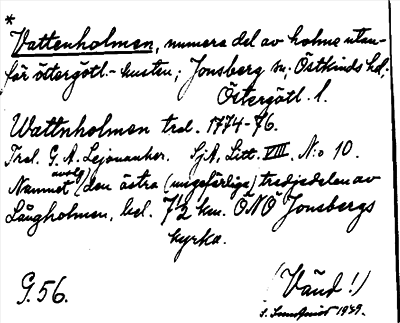 *
Vattenholmen, numera del av holme utan-
för östergötl.-kusten; Jonsberg sn; Östkinds hd,
Östergötl. l.
Wattnholmen trol. 1774-76.
Trol. G. A. Lejonanker. SjA, Litt. VIII. No 10.
Namnet avsåg den östra (ungefärliga) tredjedelen av
Långholmen, bel. 7½ km. ÖNÖ Jonsbergs
kyrka.
G. 56.
(Vänd!)
S. Sundqvist 1939.